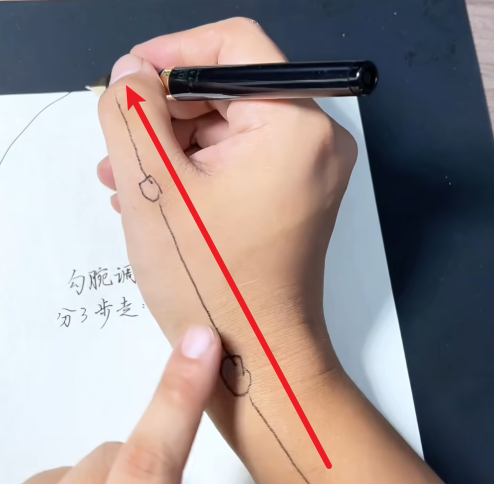 勾腕调
分3步走：